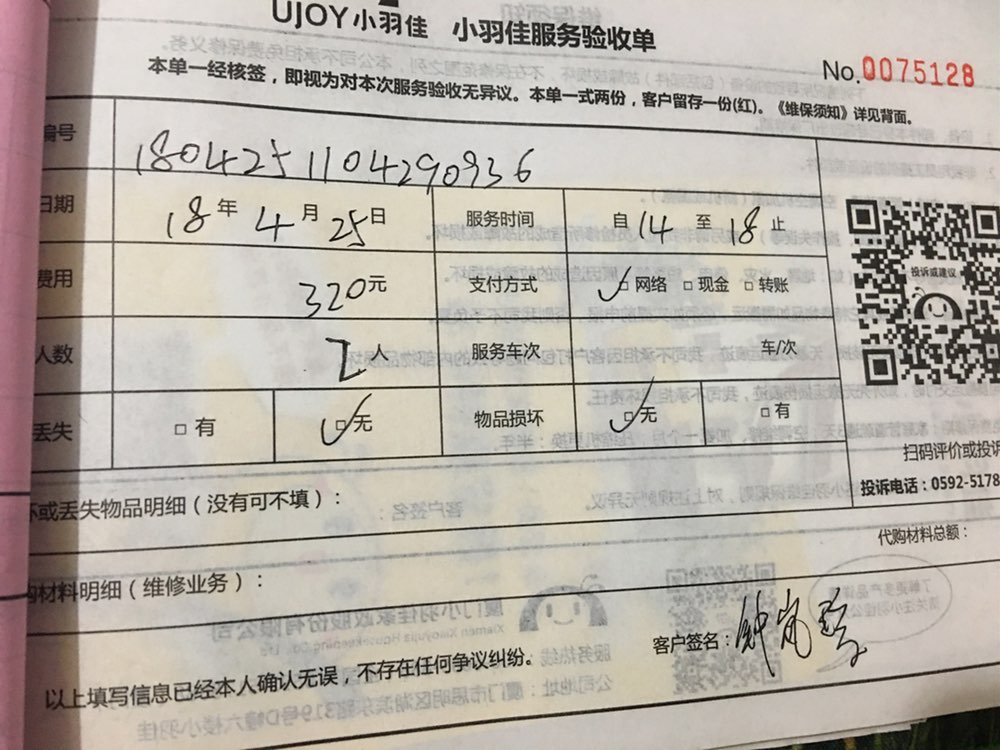 UJOY小羽佳 小羽佳服务验收单
No.0075128
本单一经核签，即视为对本次服务验收无异议。本单一式两份，客户留存一份(红)。《维保须知》详见背面。
编号 180425110429 0936
日期 18年4月25日 服务时间 自14至18止
费用 320元 支付方式 ☑网络 □现金 □转账
人数 2人 服务车次 车/次
丢失 □有 ☑无 物品损坏 ☑无 □有
投诉或建议
扫码评价或投诉
投诉电话：0592-5178
坏或丢失物品明细（没有可不填）：
代购材料总额：
购材料明细（维修业务）：
客户签名：
以上填写信息已经本人确认无误，不存在任何争议纠纷。